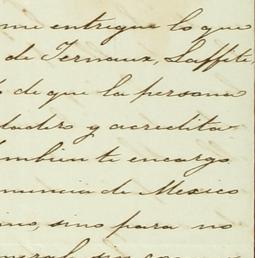 me entregue lo que
de Ternaux, Laffite,
de que la persona
dadero y acredita-
tambien te encargo
nuncia de Mexico
ino, sino para no